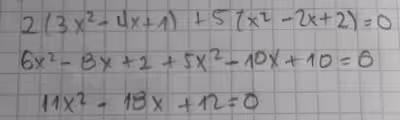 2(3x² - 4x + 1) + 5(x² - 2x + 2) = 0
6x² - 8x + 2 + 5x² - 10x + 10 = 0
11x² - 18x + 12 = 0